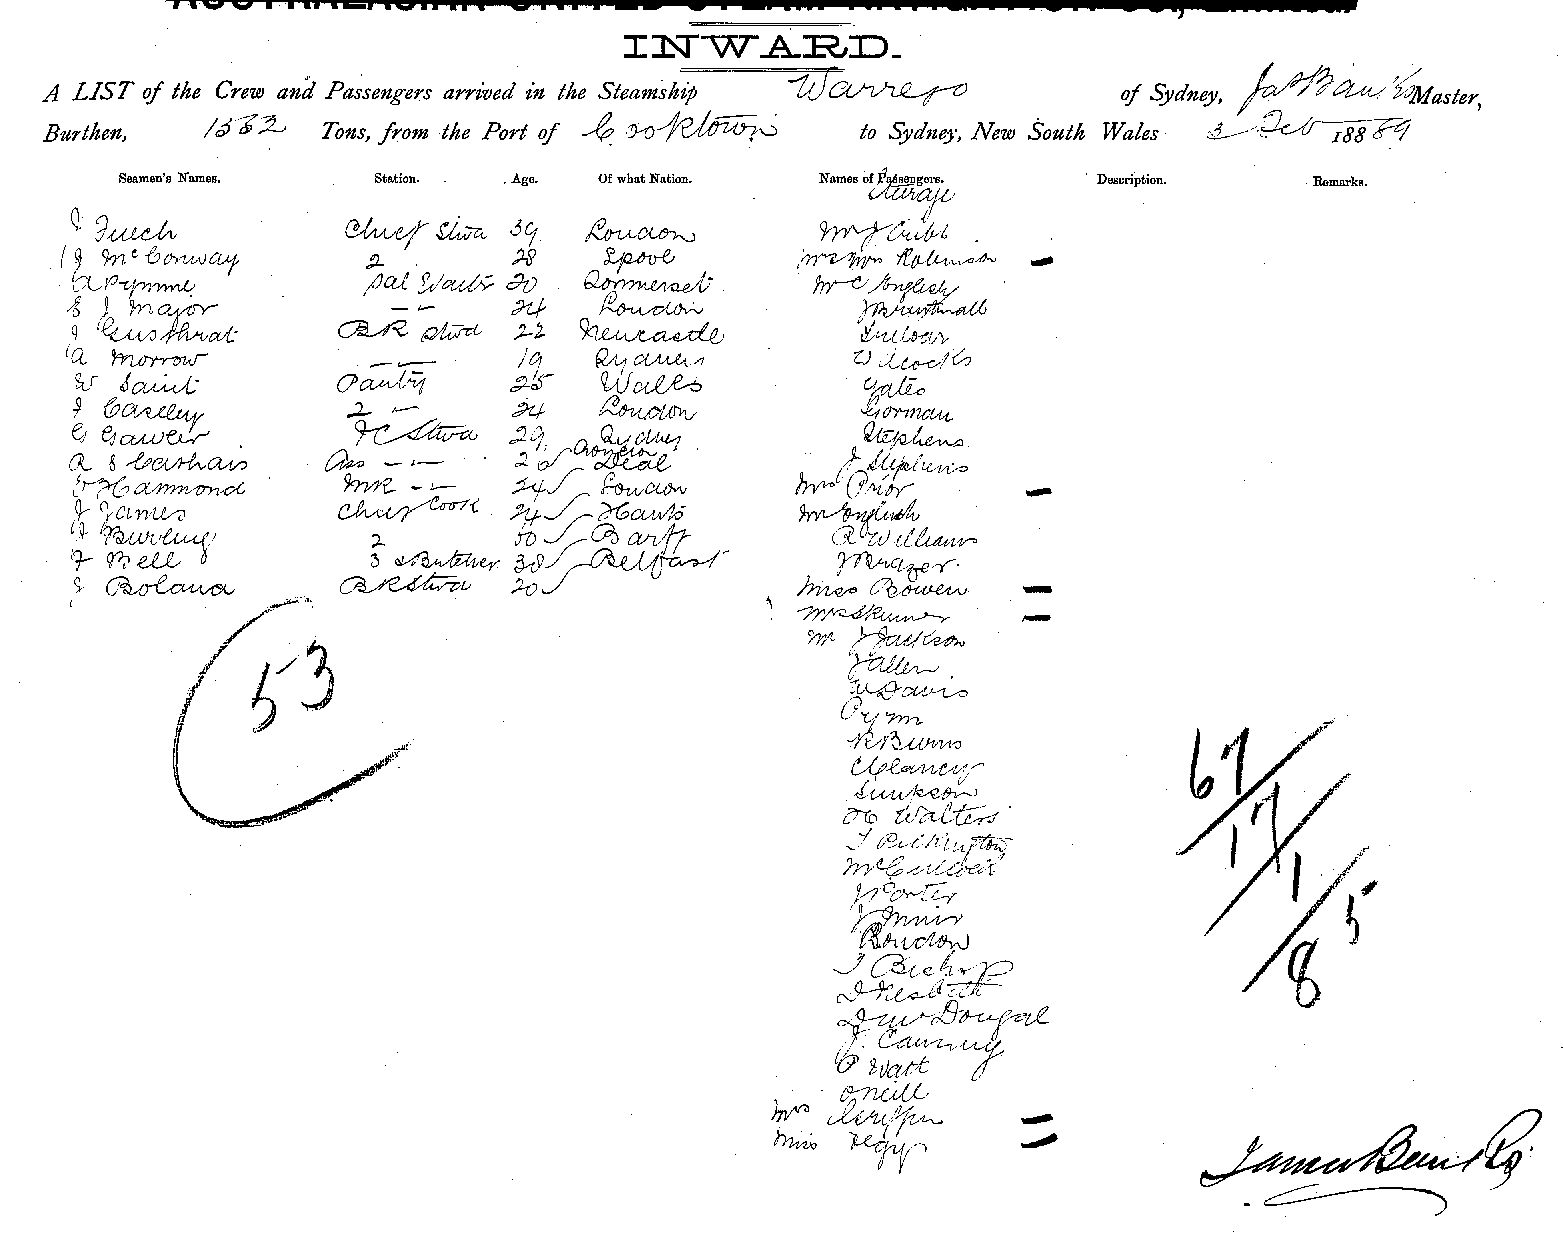 AUSTRALASIAN UNITED STEAM NAVIGATION CO., Limited.
INWARD.
A LIST of the Crew and Passengers arrived in the Steamship Warrego of Sydney, Jas Banks Master,
Burthen, 1552 Tons, from the Port of Cooktown to Sydney, New South Wales 3 Feb 18889
Seamen's Names. Station. Age. Of what Nation. Names of Passengers. Description. Remarks.
Steerage
Chief Stwd 39 London Mr J Cribb
J McConway 2 28 Lpool Mr & Mrs Robinson
A Pymme Sal Waitr 20 Sommerset Mr C English
E J Major 24 London
BK Stwd 22 Newcastle
A Morrow 19 Sydney Wilcocks
W Saint Pantry 25 Wales Yates
J Caseley 2 24 London Gorman
G Gawler FC Stwd 29 Sydney Stephens
Ass Deal J Stephens
W Hammond 24 London Mrs Prior
J James Chief Cook 24 Hants Mr English
2 50 Banff R Williams
F Bell 3 & Butcher 38 Belfast J Brazer
J Boland BK Stwd 20 Miss Bowen
Mrs Skinner
53
Mr J Jackson
J Allen
W Davis
Pymm
R Burns
Clancy
Simpson
67
H Walters
17
T Pilkington
McCullock
1
J Porter
5
J Muir
Roudon
T Bishop
8
D Nesbitt
D McDougal
J. Canning
P Watt
Oneill
Mrs Griffin
Miss
James Banks